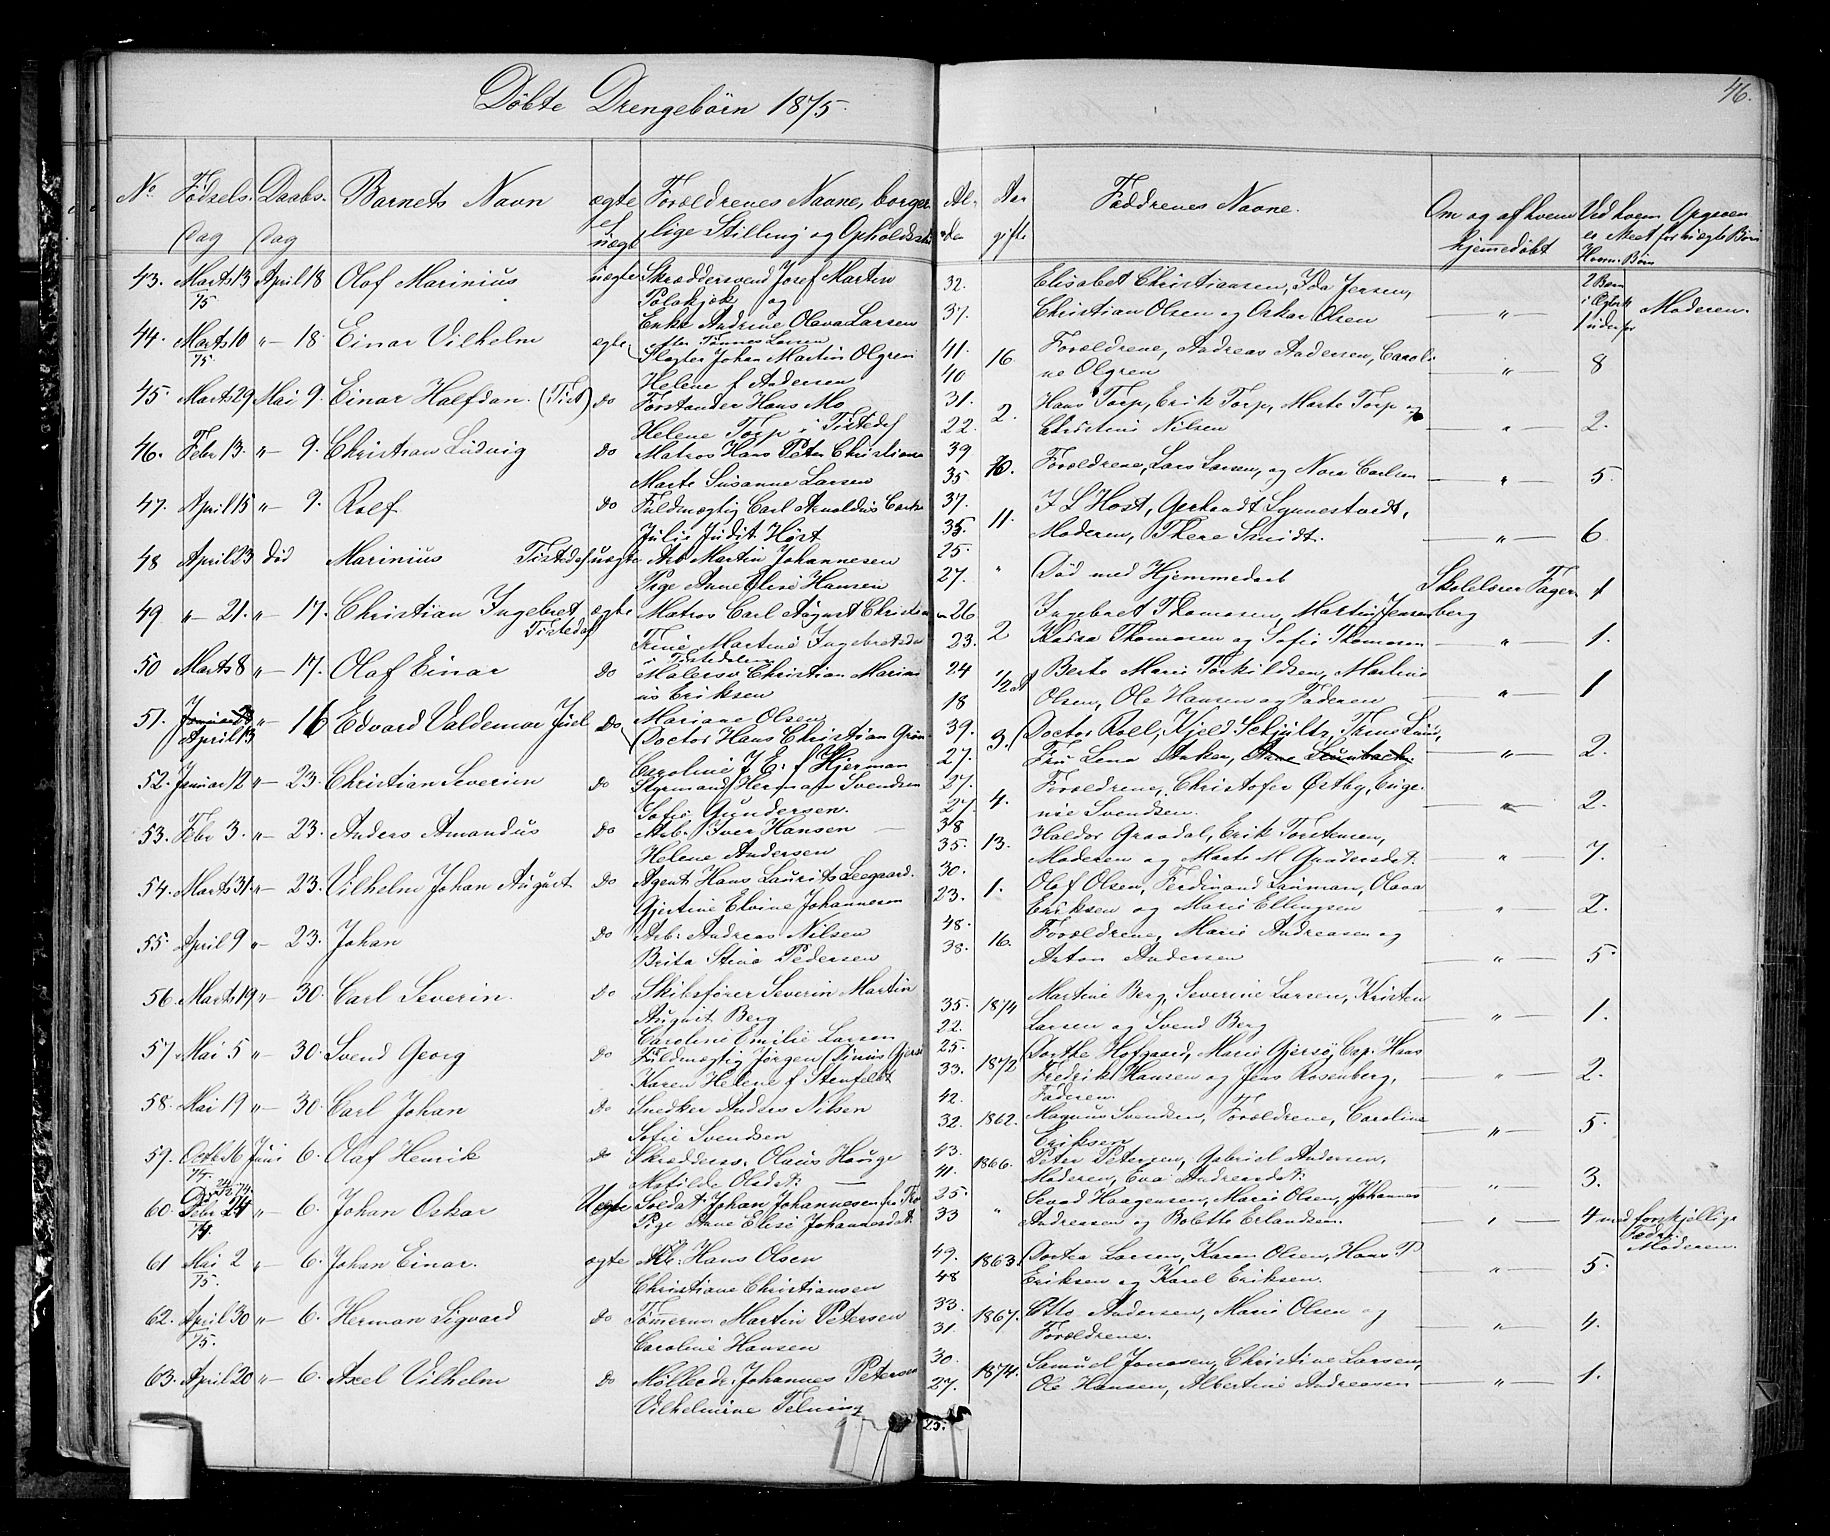 Döbte Drengebörn 1875.
46.
No Födsels Dag Daabs Dag Barnets Navn ægte el uægt Forældrenes Navne, borgerlige Stilling og Opholdsst Alder Aar gifte Faddrenes Navne. Om og af hvem hjemmedöbt Ved hvem er Meet for Börn Opgiven uægte Börn
43. Marts 13 April 18 Olaf Marinius uægte Skræddersvend Josef Martin 32. Elisabet Christiansen, Ida Jensen, 2 Børn
75 Polakjek og 37. Christian Olsen og Oskar Olsen — " — i Ægtesk 1 udenfor Moderen.
Enke Andrine Olava Larsen
efter Tönnes Larsen
44. Marts 10 " 18. Einar Vilhelm ægte Slagter Johan Martin Olgren 41. 16. Forældrene, Andreas Andersen, Caroli-
75 Helene f Andersen 40 ne Olgren — " — 8
45. Marts 29 Mai 9. Einar Halfdan. (Tist) do Forstander Hans Mo 31. 2. Hans Torp, Erik Torp, Marte Torp og
Helene Torp i Tistedal 22. Christine Nilsen — " — 2.
46. Febr 13. " 9. Christian Ludvig do Matros Hans Peter Christians 39 10. Forældrene, Lars Larsen, og Nora Carlsen
Marte Susanne Larsen 35 — " — 5.
47. April 15 " 9. Rolf do Fuldmægtig Carl Arnoldus 37. 11. J L Höst, Gerhardt Synnestvedt,
Julie Judit Höst 35. Moderen, There Smidt. — " — 6
48 April 23 död Marinius Tistedal uægte Arb Martin Johannesen 25. " Död med Hjemmedaab Skolelærer Fagerberg 1
Pige Anne Elise Hansen 27.
49 " 21. " 17. Christian Ingebret Tistedal ægte Matros Carl August Christen 26 2 Ingebret Thomasen, Martin Jensen
Trine Martine Ingebretsdat 23. Thomasen og Sofie Thomasen — " — 1.
i Tistedalen
50 Marts 8 " 17. Olaf Einar do Malersv Christian Marini 24 1/2 A Berte Marie Torkildsen, Martine
us Eriksen 18 Olsen, Ole Hansen og Faderen — " — 1
Mariane Olsen
51. April 13 " 16 Edvard Valdemar Juel do Doctor Hans Christian Grön 39. 3. Doctor Roll, Kjeld Schjultz, Trine Lund,
Caroline J. E. f Hjerman 27. Fru Lena Anker, — " — 2.
52. Januar 12 " 23. Christian Severin do Styrmand Herman Svendsen 27. 4. Forældrene, Christofer Örtby, Euge-
Sofie Gundersen. 27. nie Svendsen. — " — 2.
53. Febr 3. " 23. Anders Amandus do Arb. Iver Hansen 38 13. Haldor Graadal, Erik Torstensen,
Helene Andersen 35. Moderen og Marte M Gundersdat. — " — 7.
54. Marts 31 " 23. Vilhelm Johan August do Agent Hans Laurits Leegaard. 30. 1. Olof Olsen, Ferdinand Lauman, Olava
Gjertine Elvine Johannesen 23. Eriksen og Marie Ellingsen — " — 2.
55. April 9 " 23. Johan do Arb: Andreas Nilsen 48. 16. Forældrene, Marie Andreasen og
Brita Stine Pedersen 38. Anton Andersen — " — 5.
56. Marts 19 " 30. Carl Severin. do Skibsförer Severin Martin 35. 1874 Martine Berg, Severine Larsen, Kristen
August Berg 22. Larsen og Svend Berg — " — 1.
Caroline Emilie Larsen
57. Mai 5 " 30. Svend Georg do Fuldmægtig Jörgen Dinius Gjersö 25. 1872 Dorthe Hofgaard, Marie Gjersö, Cap. Hans
Karen Helene f Stenfeldt 33. Fredrik Hansen og Jens Rosenberg, — " — 2.
Faderen.
58. Mai 19 " 30. Carl Johan do Snedker Anders Nilsen 42. 1862. Magnus Svendsen, Forældrene, Caroline
Sofie Svendsen 32. Eriksen — " — 5.
59. Octbr 16 Juni 6. Olaf Henrik do Skrædders. Olaus Hauge 43. 1866. Peter Petersen, Gabriel Andersen,
Matilde Olsdat. 41. Moderen, Eva Andreasdat. — " — 3.
60. 24 " 6. Johan Oskar Uægte Soldat Johan Johannesen fr 25. " Sevad Haagensen, Marie Olsen, Johannes
74. Pige Anne Elise Johannesdat 33 Andreasen og Bolette Erlandsen. — " — 4 med forskjellige Fædre. Moderen.
61 Mai 2 " 6. Johan Einar. ægte Arb. Hans Olsen 49. 1863. Dortea Larsen, Karen Olsen, Hans P
75. Christiane Christiansen 48 Eriksen og Karel Eriksen. — " — 5.
62. April 30 " 6. Herman Sigvard do Tömerm Martin Petersen 33. 1867. Otto Andersen, Marie Olsen og
75. Caroline Hansen 31. Forældrene. — " — 4.
63. April 20 " 6. Axel Vilhelm do Möllearb. Johannes Petersen 30. 1874. Samuel Jonasen, Christine Larsen,
Vilhelmine Telning 27. Ole Hansen, Albertine Andreasen — " — 1.
25.